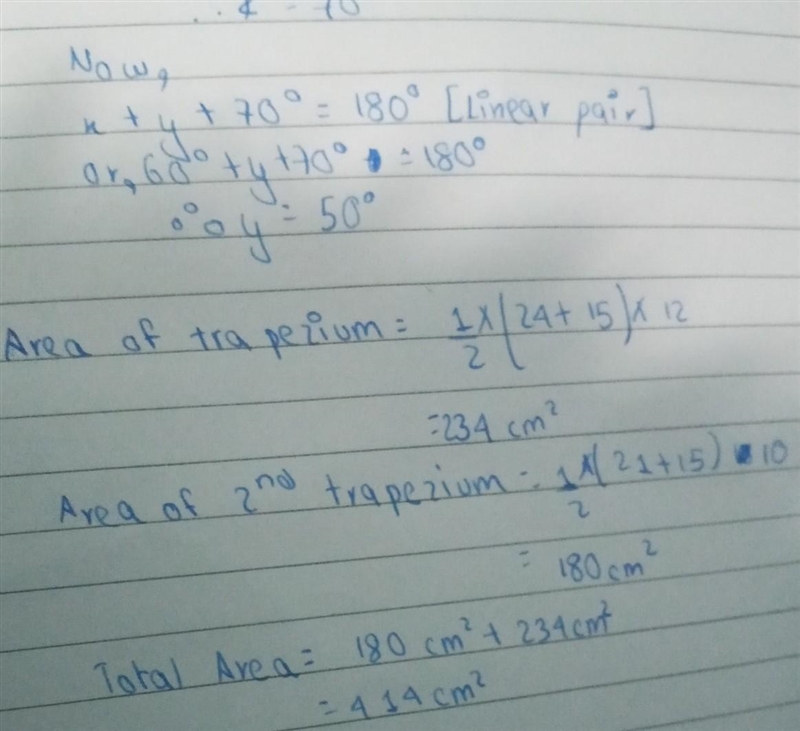 Now,
x + y + 70° = 180° [Linear pair]
or, 60° + y + 70° = 180°
∴ y = 50°
Area of trapezium = 1/2 × (24 + 15) × 12
= 234 cm²
Area of 2nd trapezium = 1/2 × (21 + 15) · 10
= 180 cm²
Total Area = 180 cm² + 234 cm²
= 414 cm²